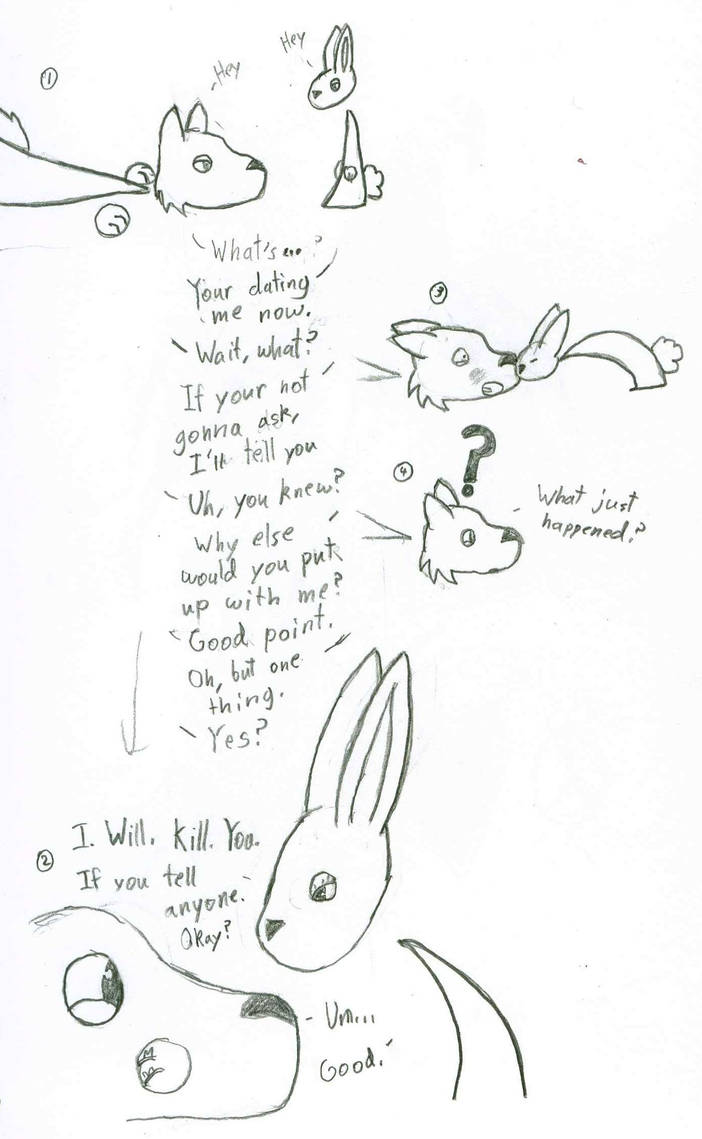 ①
Hey
Hey
What's...?
Your dating
me now.
Wait, what?
If your not
gonna ask,
I'll tell you
Uh, you knew?
Why else
would you put
up with me?
Good point.
Oh, but one
thing.
Yes?
②
I. Will. Kill. You.
If you tell
anyone.
Okay?
Um...
Good.
③
④
?
What just
happened?